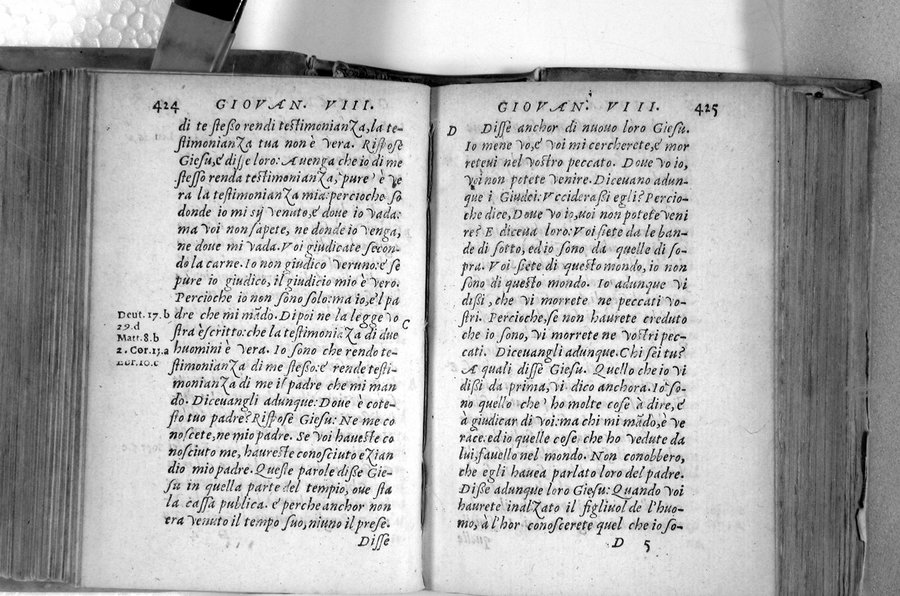 424 GIOVAN. VIII.
di te stesso rendi testimonianza, la te-
stimonianza tua non è vera. Rispose
Giesu, e disse loro: Auenga che io di me
stesso renda testimonianza, pure è ve
ra la testimonianza mia: percioche so
donde io mi sij venuto, e doue io vada:
ma voi non sapete, ne donde io venga,
ne doue mi vada. Voi giudicate secon-
do la carne. Io non giudico veruno: e se
pure io giudico, il giudicio mio è vero.
Percioche io non sono solo: ma io, e 'l pa
Deut. 17. b dre che mi mãdo. Dipoi ne la legge vo
29. d stra è scritto: che la testimonianza di due C
Matt. 8. b
2. Cor. 13. a huomini è vera. Io sono che rendo te-
Ebr. 10. c stimonianza di me stesso: e rende testi-
monianza di me il padre che mi man
do. Diceuangli adunque: Doue è cote-
sto tuo padre? Rispose Giesu: Ne me co
noscete, ne mio padre. Se voi haueste co
nosciuto me, haureste conosciuto ezian
dio mio padre. Queste parole disse Gie-
su in quella parte del tempio, oue sta
la cassa publica. e perche anchor non
era venuto il tempo suo, niuno il prese.
Disse
GIOVAN. VIII. 425
D Disse anchor di nuouo loro Giesu.
Io mene vo, e voi mi cercherete, e mor
retevi nel vostro peccato. Doue vo io,
voi non potete venire. Diceuano adun-
que i Giudei: Vcciderassi egli? Percio-
che dice, Doue vo io, uoi non potete veni
re? E diceua loro: Voi siete da le ban-
de di sotto, ed io sono da quelle di so-
pra. Voi siete di questo mondo, io non
sono di questo mondo. Io adunque vi
dissi, che vi morrete ne peccati vo-
stri. Percioche, se non haurete creduto
che io sono, vi morrete ne vostri pec-
cati. Diceuangli adunque. Chi sei tu?
A quali disse Giesu. Quello che io vi
dissi da prima, vi dico anchora. Io so-
no quello che ho molte cose à dire, e
à giudicar di voi: ma chi mi mãdo, è ve
race. ed io quelle cose che ho vedute da
lui, fauello nel mondo. Non conobbero,
che egli hauea parlato loro del padre.
Disse adunque loro Giesu: Quando voi
haurete inalzato il figliuol de l'huo-
mo, à l'hor conoscerete quel che io so-
D 5